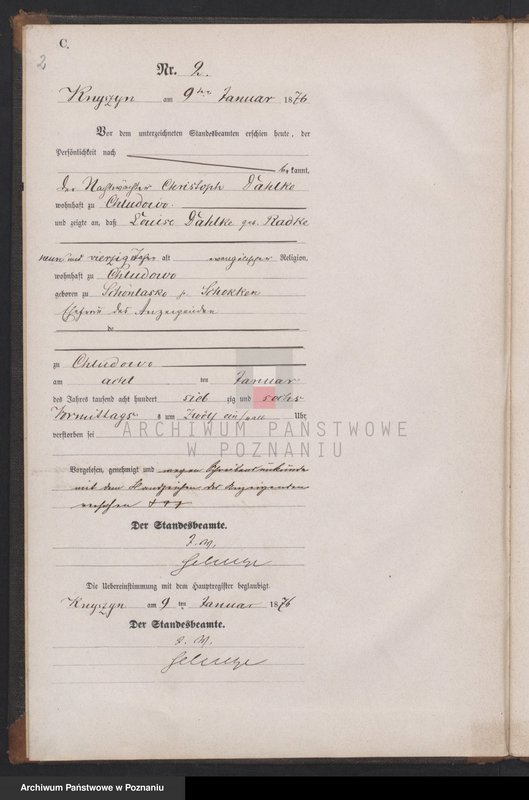 C.
2
Nr. 2.
Knyszyn am 9ten Januar 1876
Vor dem unterzeichneten Standesbeamten erschien heute, der
Persönlichkeit nach
be kannt,
der Nachtwächter Christoph Dahlke
wohnhaft zu Chludowo.
und zeigte an, daß Louise Dahlke geb. Radke
neun und vierzig Jahre alt evangelischer Religion,
wohnhaft zu Chludowo
geboren zu Schokken
Ehefrau des Anzeigenden
de
zu Chludowo
am acht ten Januar
des Jahres tausend acht hundert sieb zig und sechs
Vormittags um zwölf ein Uhr
verstorben sei
Vorgelesen, genehmigt und wegen Schreibensunkunde
mit dem Handzeichen des Anzeigenden
versehen +++
Der Standesbeamte.
Die Uebereinstimmung mit dem Hauptregister beglaubigt.
Knyszyn am 9 ten Januar 1876
Der Standesbeamte.
ARCHIWUM PAŃSTWOWE
W POZNANIU
Archiwum Państwowe w Poznaniu